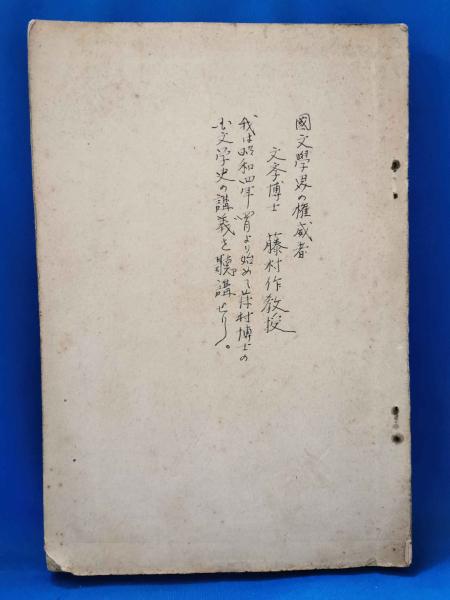 國文學界の権威者
文斈博士 藤村作教授
我は昭和四年 月より始めて藤村博士の
国文学史の講義を聴講せり。